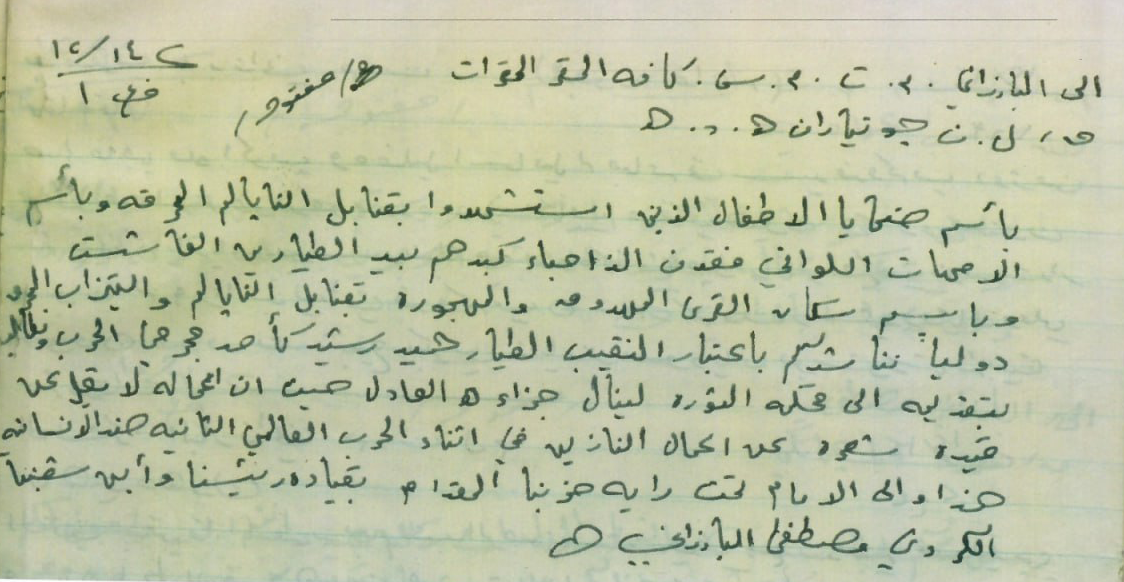 الى البارزاني . م . ت . م . س . كافه المقر المقرات
م/ مفتوح
١٤/١٢
ل . ن جوتياران ه . . . ه
بأسم ضحايا الاطفال الذين استشهدوا بقنابل النابالم الحرقه وبأسم
الامهات اللواتي فقدن الذاحباء كبدهم بيد الطيارين الفاشست
وبأسم سكان القرى المهدومه والمهجوره بقنابل النابالم والتيزاب المحرم
دولياً نناشدكم باعتبار النقيب الطيار حميد رشيد كأحد مجرمي الحرب ونطالب
بتقديمه الى محكمه الثوره لينال جزاءه العادل حيث ان اعماله لا تقل عن
قيده شعره عن اعمال النازيين في اثناء الحرب العالمي الثانيه ضد الانسانيه
هذا والى الامام تحت رايه حزبنا المقدام بقيادة رئيسنا وأبن شعبنا
الكردي مصطفى البارزاني